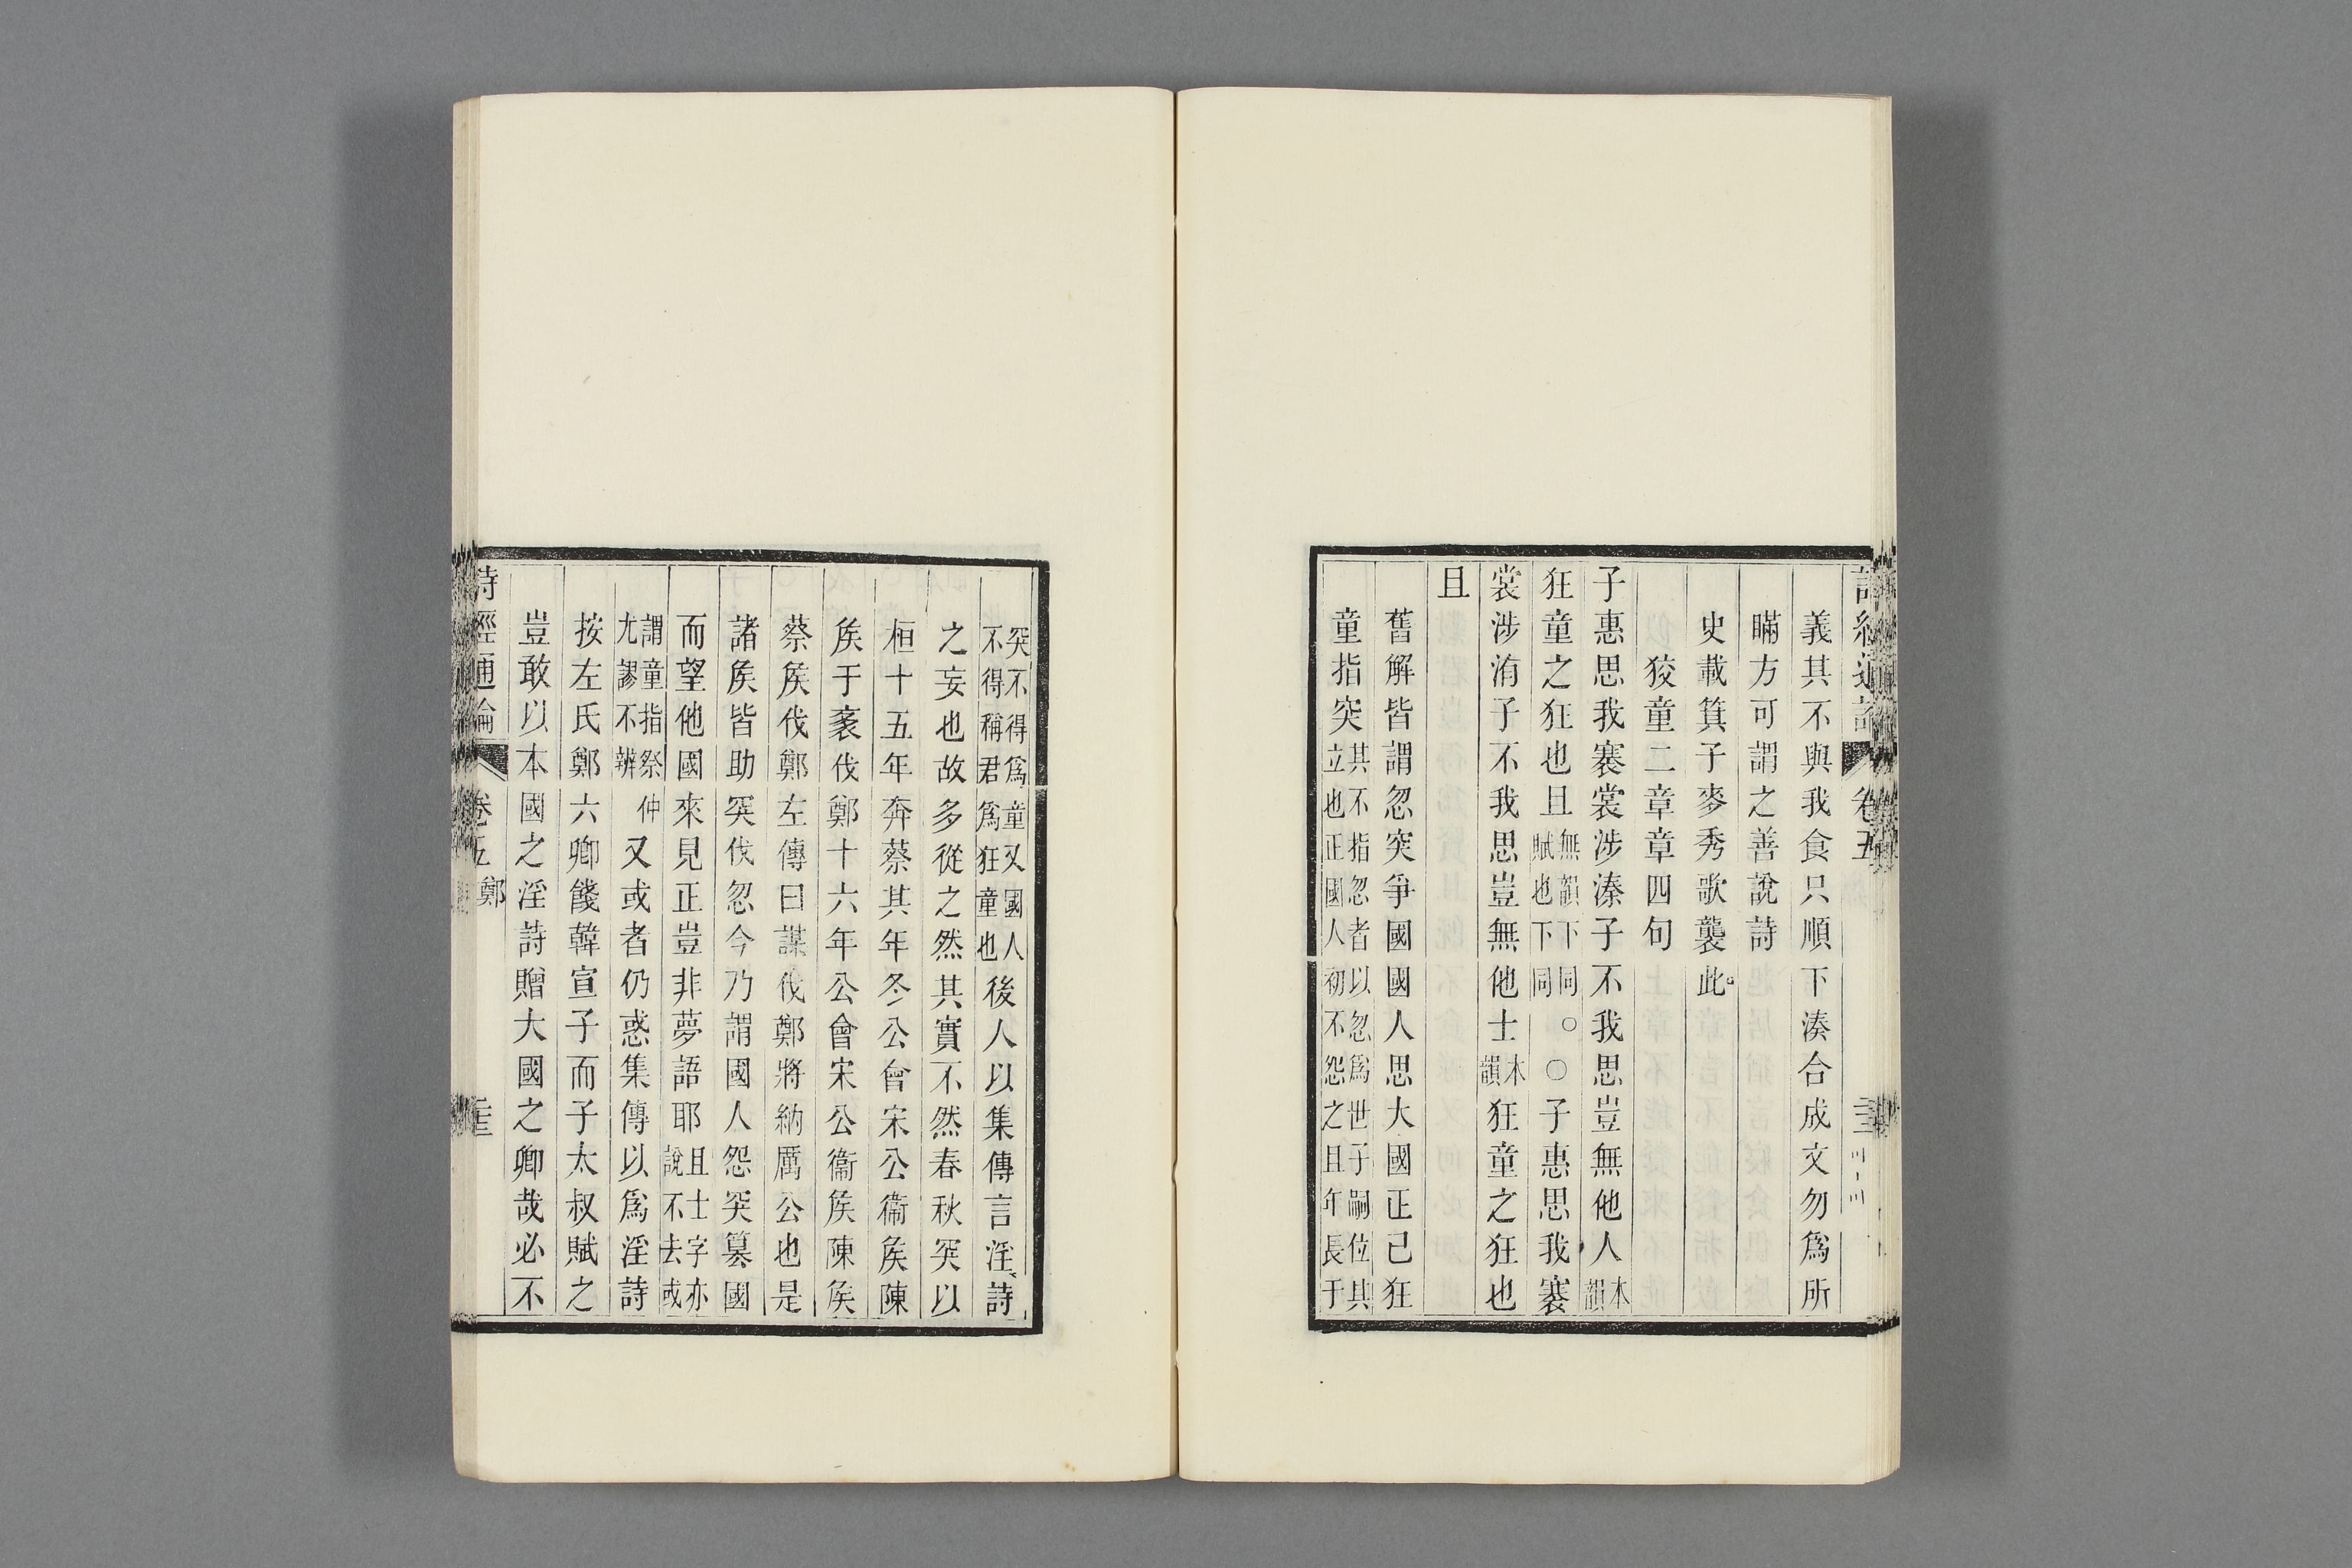 義其不與我食只順下湊合成文勿爲所
瞞方可謂之善說詩
史載箕子麥秀歌襲此。
狡童二章章四句
子惠思我褰裳涉溱子不我思豈無他人本韻
狂童之狂也且無韻下同賦也下同○○子惠思我褰
裳涉洧子不我思豈無他士本韻狂童之狂也
且
舊解皆謂忽突爭國國人思大國正已狂
童指突其不指忽者以忽爲世子嗣位其立也正國人初不怨之且年長于
突不得爲童又國人不得稱君爲狂童也後人以集傳言淫詩
之妄也故多從之然其實不然春秋突以
桓十五年奔蔡其年冬公會宋公衞矦陳
矦于袲伐鄭十六年公會宋公衞矦陳矦
蔡矦伐鄭左傳曰謀伐鄭將納厲公也是
諸矦皆助突伐忽今乃謂國人怨突篡國
而望他國來見正豈非夢語耶且士字亦說不去或
謂童指祭仲尤謬不辨又或者仍惑集傳以爲淫詩
按左氏鄭六卿餞韓宣子而子太叔賦之
豈敢以本國之淫詩贈大國之卿哉必不
詩經通論 卷五 鄭